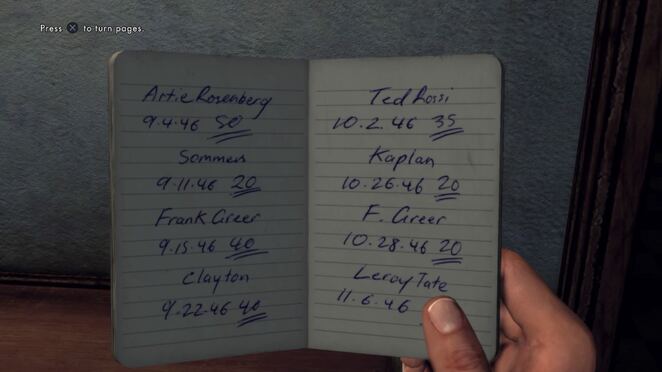 Press X to turn pages.
Artie Rosenberg
9.4.46 50
Sommers
9.11.46 20
Frank Greer
9.15.46 40
Clayton
9.22.46 40
Ted Rossi
10.2.46 35
Kaplan
10.26.46 20
F. Greer
10.28.46 20
Leroy Tate
11.6.46